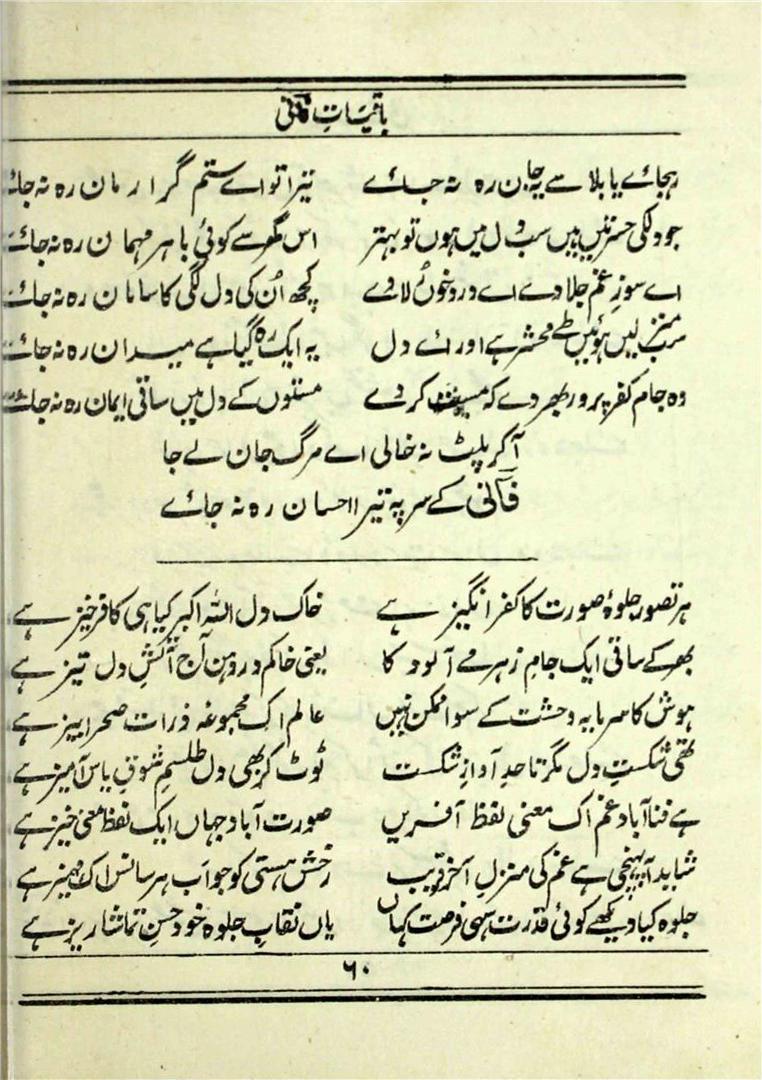 باقیاتِ فانی
رہجائے یا بلا سے یہ جان رہ نہ جائے تیرا تو اے ستم گر ارمان رہ نہ جائے
جو دل کی حسرتیں ہیں سب دل میں ہوں تو بہتر اس گھر سے کوئی باہر مہمان رہ نہ جائے
اے سوزِ غم جلا دے اے درد خوں رلا دے کچھ اُن کی دل لگی کا سامان رہ نہ جائے
سب منزلیں ہوئیں طے محشر ہے اور اے دل یہ ایک رہ گیا ہے میدان رہ نہ جائے
وہ جام کفر پرور بھر دے کہ مست کر دے مستوں کے دل میں ساقی ایمان رہ نہ جائے
آکر پلٹ نہ خالی اے مرگ جان لے جا
فانی کے سر پہ تیرا احسان رہ نہ جائے
ہر تصور جلوۂ صورت کا کفر انگیز ہے خاک دل اللہ اکبر کیا ہی کافر خیز ہے
بھر کے ساقی ایک جامِ زہر مے آلود کا یعنی خاکم در دہن آج آتشِ دل تیز ہے
ہوش کا سرمایہ وحشت کے سوا ممکن نہیں عالم اک مجموعۂ ذرات صحرا بیز ہے
تھی شکستِ دل مگر تا حدِ آوازِ شکست ٹوٹ کر بھی دل طلسمِ شوقِ یاس آمیز ہے
ہے فنا آباد غم اک معنی لفظ آفریں صورت آباد جہاں ایک لفظ معنی خیز ہے
شاید آ پہنچی ہے غم کی منزلِ آخر قریب رخش ہستی کو جو اب ہر سانس اک مہمیز ہے
جلوہ کیا دیکھے کوئی قدرت سہی فرصت کہاں یاں نقابِ جلوہ خود حسنِ تماشا ریز ہے
۶۰